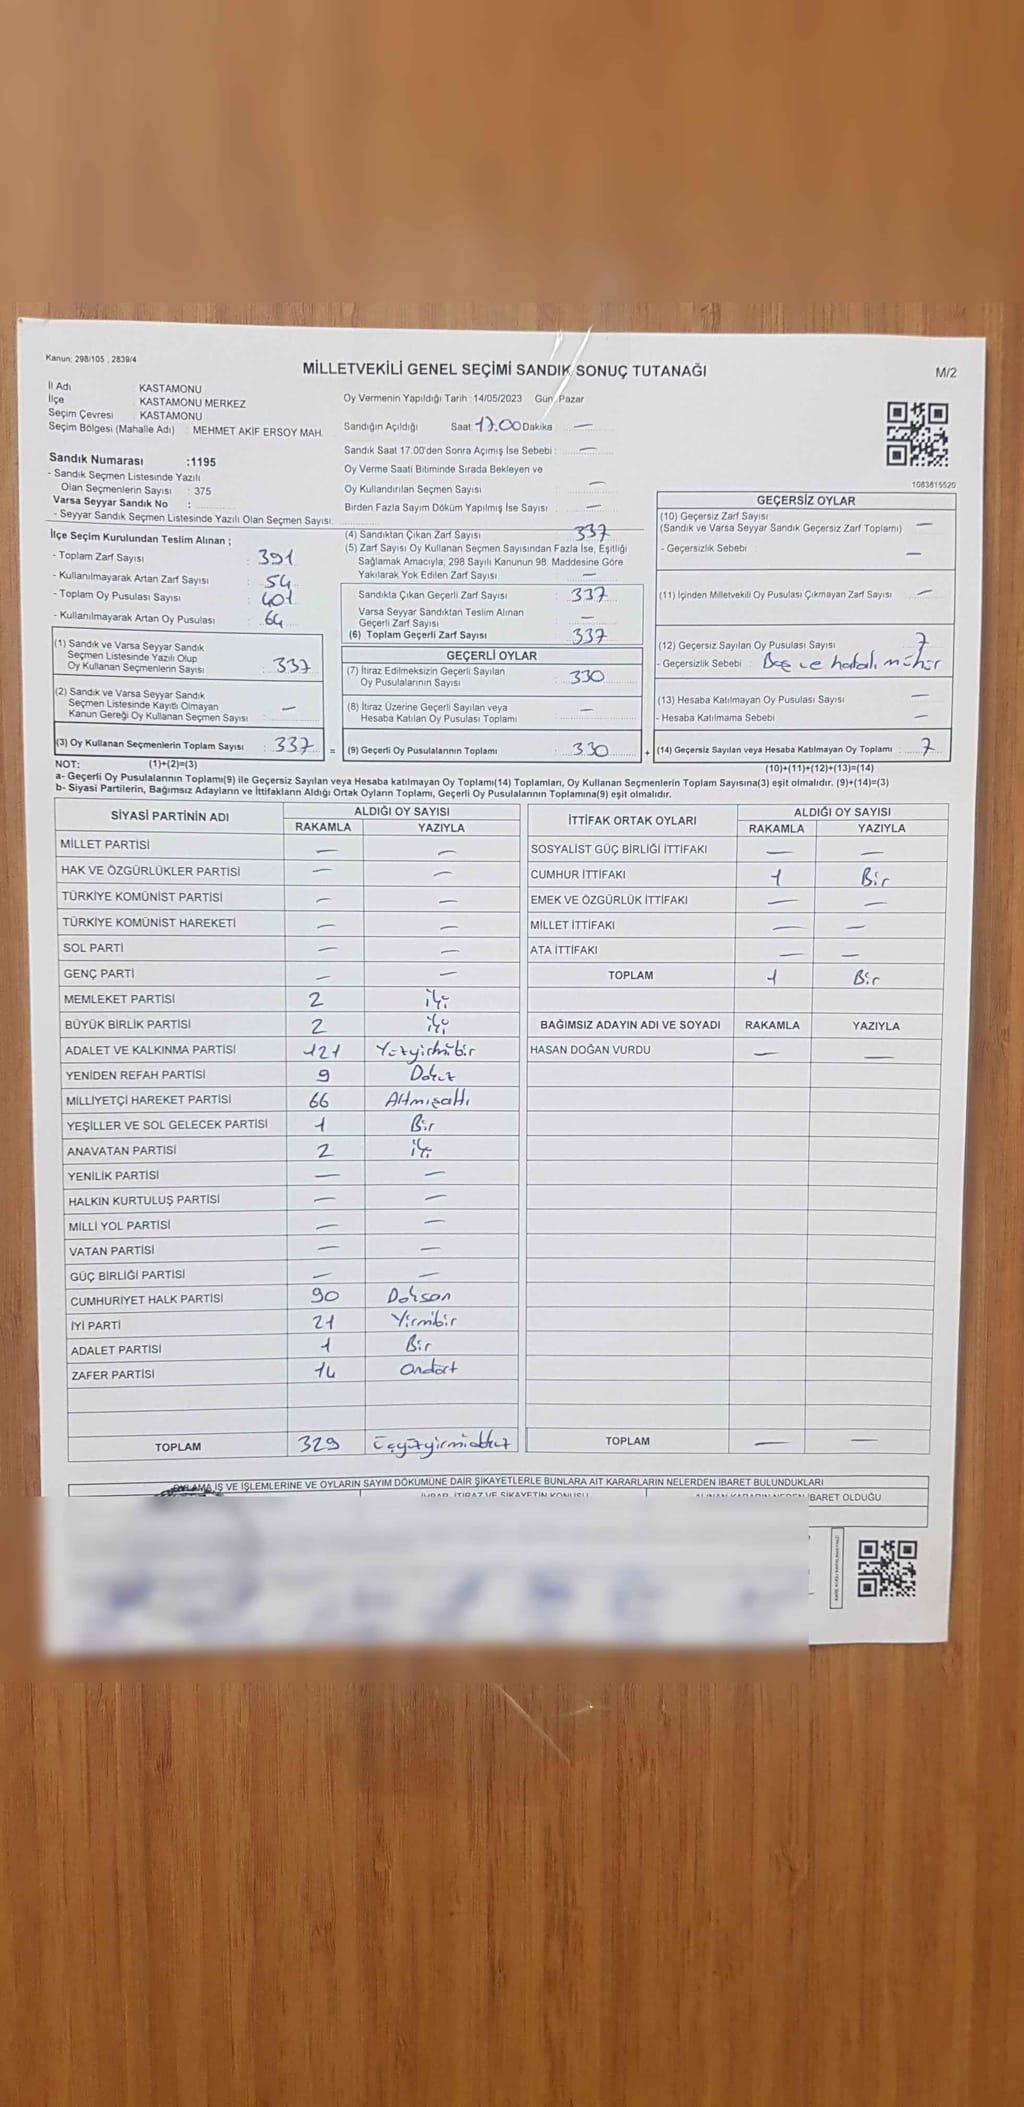 Kanun: 298/105 , 2839/4
MİLLETVEKİLİ GENEL SEÇİMİ SANDIK SONUÇ TUTANAĞI
M/2
İl Adı KASTAMONU
İlçe KASTAMONU MERKEZ
Seçim Çevresi : KASTAMONU
Seçim Bölgesi (Mahalle Adı) : MEHMET AKİF ERSOY MAH.
Sandık Numarası :1195
- Sandık Seçmen Listesinde Yazılı
Olan Seçmenlerin Sayısı : 375
Varsa Seyyar Sandık No :
- Seyyar Sandık Seçmen Listesinde Yazılı Olan Seçmen Sayısı:
Oy Vermenin Yapıldığı Tarih :14/05/2023 Gün: Pazar
Sandığın Açıldığı Saat: 17.00 Dakika : —
Sandık Saat 17.00'den Sonra Açımış İse Sebebi : —
Oy Verme Saati Bitiminde Sırada Bekleyen ve
Oy Kullandırılan Seçmen Sayısı : —
Birden Fazla Sayım Döküm Yapılmış İse Sayısı : —
1083815520
İlçe Seçim Kurulundan Teslim Alınan ;
- Toplam Zarf Sayısı : 391
- Kullanılmayarak Artan Zarf Sayısı : 54
- Toplam Oy Pusulası Sayısı : 401
- Kullanılmayarak Artan Oy Pusulası : 64
(1) Sandık ve Varsa Seyyar Sandık
Seçmen Listesinde Yazılı Olup
Oy Kullanan Seçmenlerin Sayısı : 337
(2) Sandık ve Varsa Seyyar Sandık
Seçmen Listesinde Kayıtlı Olmayan
Kanun Gereği Oy Kullanan Seçmen Sayısı : —
(3) Oy Kullanan Seçmenlerin Toplam Sayısı : 337 =
(4) Sandıktan Çıkan Zarf Sayısı : 337
(5) Zarf Sayısı Oy Kullanan Seçmen Sayısından Fazla İse, Eşitliği
Sağlamak Amacıyla; 298 Sayılı Kanunun 98. Maddesine Göre
Yakılarak Yok Edilen Zarf Sayısı : —
Sandıkta Çıkan Geçerli Zarf Sayısı : 337
Varsa Seyyar Sandıktan Teslim Alınan
Geçerli Zarf Sayısı : —
(6) Toplam Geçerli Zarf Sayısı : 337
GEÇERLİ OYLAR
(7) İtiraz Edilmeksizin Geçerli Sayılan
Oy Pusulalarının Sayısı : 330
(8) İtiraz Üzerine Geçerli Sayılan veya
Hesaba Katılan Oy Pusulası Toplamı : —
(9) Geçerli Oy Pusulalarının Toplamı : 330 +
GEÇERSİZ OYLAR
(10) Geçersiz Zarf Sayısı
(Sandık ve Varsa Seyyar Sandık Geçersiz Zarf Toplamı) : —
- Geçersizlik Sebebi : —
(11) İçinden Milletvekili Oy Pusulası Çıkmayan Zarf Sayısı : —
(12) Geçersiz Sayılan Oy Pusulası Sayısı : 7
- Geçersizlik Sebebi : Boş ve hatalı mühür
(13) Hesaba Katılmayan Oy Pusulası Sayısı : —
- Hesaba Katılmama Sebebi : —
(14) Geçersiz Sayılan veya Hesaba Katılmayan Oy Toplamı : 7
NOT: (1)+(2)=(3) (10)+(11)+(12)+(13)=(14)
a- Geçerli Oy Pusulalarının Toplamı(9) ile Geçersiz Sayılan veya Hesaba katılmayan Oy Toplamı(14) Toplamları, Oy Kullanan Seçmenlerin Toplam Sayısına(3) eşit olmalıdır. (9)+(14)=(3)
b- Siyasi Partilerin, Bağımsız Adayların ve İttifakların Aldığı Ortak Oyların Toplamı, Geçerli Oy Pusulalarının Toplamına(9) eşit olmalıdır.
SİYASİ PARTİNİN ADI ALDIĞI OY SAYISI
RAKAMLA YAZIYLA
MİLLET PARTİSİ — —
HAK VE ÖZGÜRLÜKLER PARTİSİ — —
TÜRKİYE KOMÜNİST PARTİSİ — —
TÜRKİYE KOMÜNİST HAREKETİ — —
SOL PARTİ — —
GENÇ PARTİ — —
MEMLEKET PARTİSİ 2 iki
BÜYÜK BİRLİK PARTİSİ 2 iki
ADALET VE KALKINMA PARTİSİ 121 Yüzyirmibir
YENİDEN REFAH PARTİSİ 9 Dokuz
MİLLİYETÇİ HAREKET PARTİSİ 66 Altmışaltı
YEŞİLLER VE SOL GELECEK PARTİSİ 1 Bir
ANAVATAN PARTİSİ 2 iki
YENİLİK PARTİSİ — —
HALKIN KURTULUŞ PARTİSİ — —
MİLLİ YOL PARTİSİ — —
VATAN PARTİSİ — —
GÜÇ BİRLİĞİ PARTİSİ — —
CUMHURİYET HALK PARTİSİ 90 Doksan
İYİ PARTİ 21 Yirmibir
ADALET PARTİSİ 1 Bir
ZAFER PARTİSİ 14 Ondört
TOPLAM 329 Üçyüzyirmidokuz
İTTİFAK ORTAK OYLARI ALDIĞI OY SAYISI
RAKAMLA YAZIYLA
SOSYALİST GÜÇ BİRLİĞİ İTTİFAKI — —
CUMHUR İTTİFAKI 1 Bir
EMEK VE ÖZGÜRLÜK İTTİFAKI — —
MİLLET İTTİFAKI — —
ATA İTTİFAKI — —
TOPLAM 1 Bir
BAĞIMSIZ ADAYIN ADI VE SOYADI RAKAMLA YAZIYLA
HASAN DOĞAN VURDU — —
TOPLAM — —
İŞ VE İŞLEMLERİNE VE OYLARIN SAYIM DÖKÜMÜNE DAİR ŞİKAYETLERLE BUNLARA AİT KARARLARIN NELERDEN İBARET BULUNDUKLARI
İHBAR, İTİRAZ VE ŞİKAYETİN KONUSU
İBARET OLDUĞU